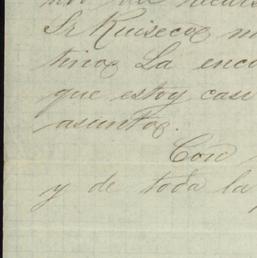 Sr Ruiseco, n
tino, La enco
que estoy casi
asuntos.
Con
y de toda la